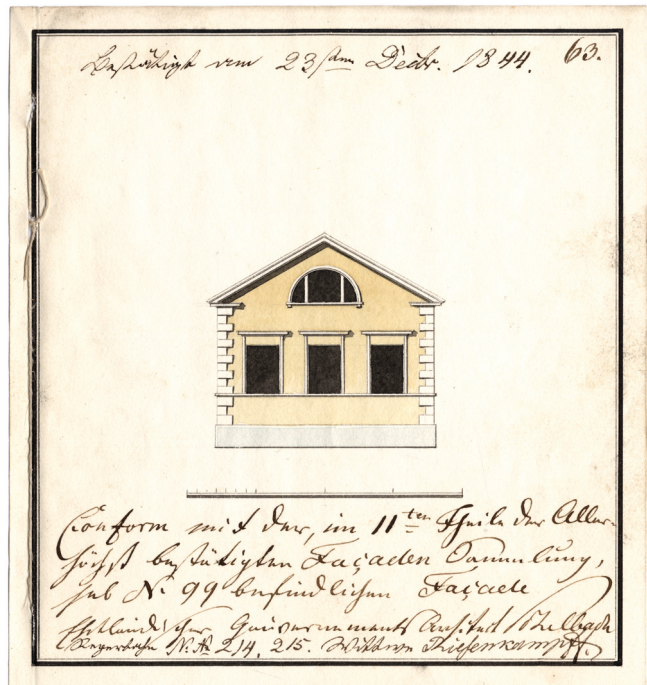 Bestätigt vom 23sten Decbr. 1844. 63.
Conform mit der, im 11ten Theile der Aller-
höchst bestätigten Façaden Sammlung,
sub N. 99 befindlichen Façade
Ehstländischer Gouvernements Architect Schellbach
N. N. 214, 215. Wittwe Riesenkampff.